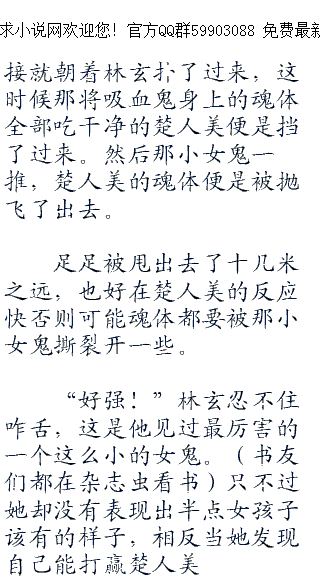 求小说网欢迎您！官方QQ群59903088 免费最新
接就朝着林玄扑了过来，这
时候那将吸血鬼身上的魂体
全部吃干净的楚人美便是挡
了过来。然后那小女鬼一
推，楚人美的魂体便是被抛
飞了出去。
足足被甩出去了十几米
之远，也好在楚人美的反应
快否则可能魂体都要被那小
女鬼撕裂开一些。
“好强！”林玄忍不住
咋舌，这是他见过最厉害的
一个这么小的女鬼。（书友
们都在杂志虫看书）只不过
她却没有表现出半点女孩子
该有的样子，相反当她发现
自己能打赢楚人美